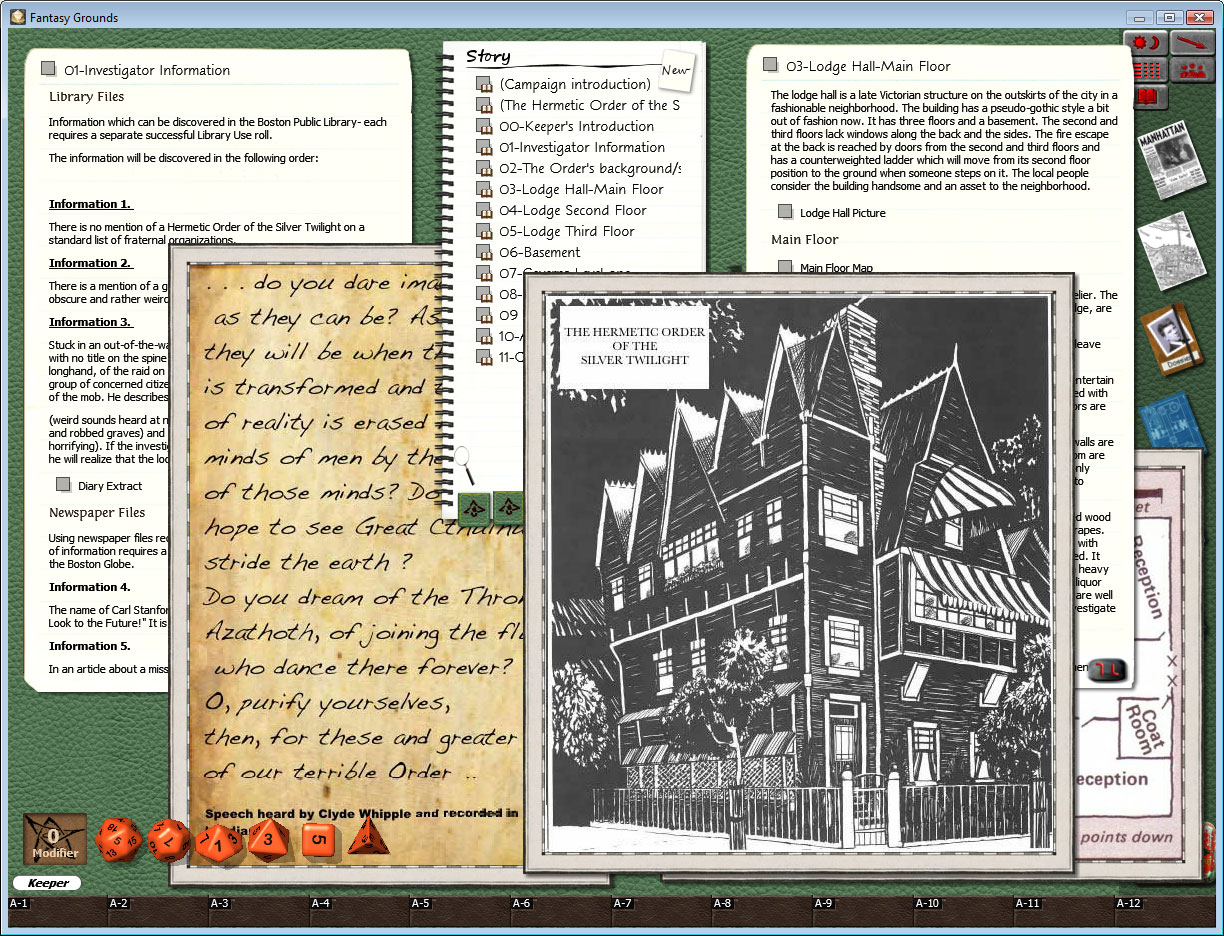 Fantasy Grounds
01-Investigator Information
Library Files
Information which can be discovered in the Boston Public Library- each
requires a separate successful Library Use roll.
The information will be discovered in the following order:
Information 1.
There is no mention of a Hermetic Order of the Silver Twilight on a
standard list of fraternal organizations.
Information 2.
There is a mention of a g
obscure and rather weird
Information 3.
Stuck in an out-of-the-wa
with no title on the spine
longhand, of the raid on
group of concerned citize
of the mob. He describes
(weird sounds heard at n
and robbed graves) and
horrifying). If the investi
he will realize that the loc
Diary Extract
Newspaper Files
Using newspaper files re
of information requires a
the Boston Globe.
Information 4.
The name of Carl Stanfor
Look to the Future!" It is
Information 5.
In an article about a miss
. . . do you dare ima
as they can be? As
they will be when t
is transformed and
of reality is erased
minds of men by the
of those minds? Do
hope to see Great Cthulhu
stride the earth ?
Do you dream of the Thron
Azathoth, of joining the fl
who dance there forever?
O, purify yourselves,
then, for these and greater
of our terrible Order ..
Speech heard by Clyde Whipple and recorded in
Story
New
(Campaign introduction)
(The Hermetic Order of the S
00-Keeper's Introduction
01-Investigator Information
02-The Order's background/s
03-Lodge Hall-Main Floor
04-Lodge Second Floor
05-Lodge Third Floor
06-Basement
07-
08-
09
10-
11-
THE HERMETIC ORDER
OF THE
SILVER TWILIGHT
03-Lodge Hall-Main Floor
The lodge hall is a late Victorian structure on the outskirts of the city in a
fashionable neighborhood. The building has a pseudo-gothic style a bit
out of fashion now. It has three floors and a basement. The second and
third floors lack windows along the back and the sides. The fire escape
at the back is reached by doors from the second and third floors and
has a counterweighted ladder which will move from its second floor
position to the ground when someone steps on it. The local people
consider the building handsome and an asset to the neighborhood.
Lodge Hall Picture
Main Floor
Main Floor Map
elier. The
dge, are
leave
ntertain
ed with
ors are
walls are
om are
only
to
d wood
rapes.
with
ed. It
heavy
liquor
are well
vestigate
MANHATTAN
Dossier
et
Reception
Coat
Room
eception
points down
0
Modifier
18
5
13
15
7
1
7
1
3
3
5
Keeper
A-1
A-2
A-3
A-4
A-5
A-6
A-7
A-8
A-9
A-10
A-11
A-12